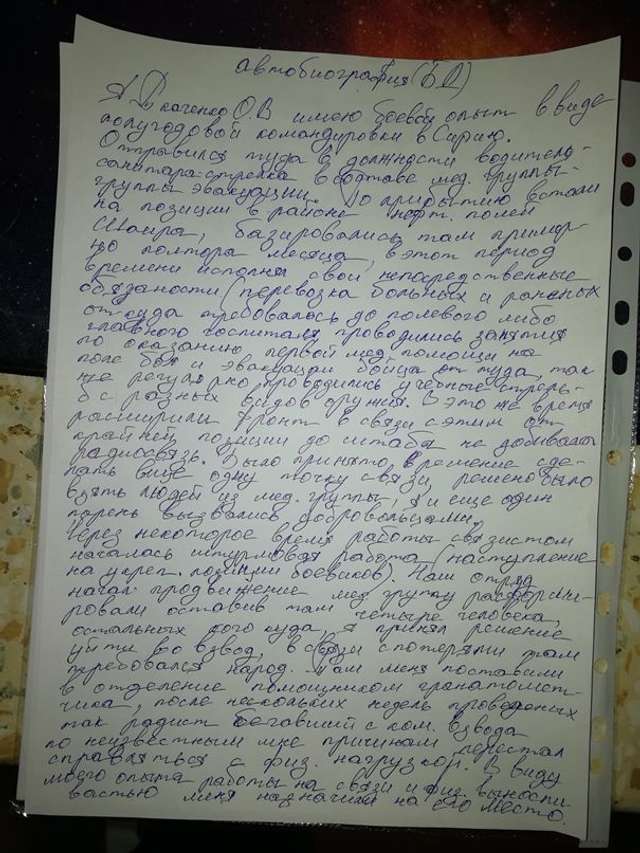 автобиография (Б Д)
Я Ткаченко О.В имею боевой опыт в виде
полугодовой командировки в Сирию.
Отправился туда в должности водитель-
санитара-стрелка в составе мед. группы-
группы эвакуации. По прибытию встали
на позиции в районе нефт. полей
Шаира, базировались там пример-
но полтора месяца, в этот период
времени исполнял свои непосредственные
обязаности (перевозка больных и раненых
откуда требовалось до полевого либо
главного госпиталя проводились занятия
по оказанию первой мед. помощи на
поле боя и эвакуации бойца от туда, так
же регулярно проводились учебные стрель-
б с разных видов оружия. В это же время
расширили фронт в связи с этим от
крайней позиции до штаба не добивала
радиосвязь. Было принято, в решение сде-
лать еще одну точку связи, решено было
взять людей из мед. группы, я и еще один
парень вызвались добровольцами.
Через некоторое время работы связистом
началась штурмовая работа (наступление
на укреп. позиции боевиков). Наш отряд
начал продвижение мед группу расформи-
ровали оставив там четыре человека,
остальных кого куда, я принял решение
уйти во взвод, в связи с потерями там
требовался народ. Там меня поставили
в отделение помощником гранатомет-
чика, после нескольких недель проведеных
так радист бегавший с ком. взвода
по неизвестным мне причинам перестал
справляться с физ. нагрузкой. В виду
моего опыта работы на связи и физ. выносли-
востью меня назначили на его место.